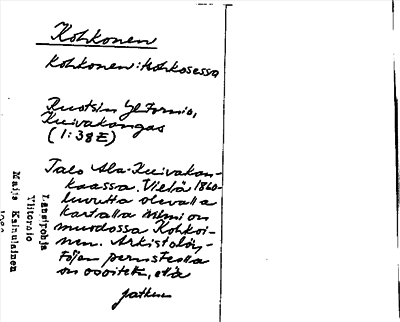 Kohkonen
Kohkonen : Kohkosessa
Ruotsin Ylitornio,
Kuivakangas
(1:38E)
Talo Ala-Kuivakan-
kaassa. Vielä 1860-
luvulta olevalla
kartalla nimi on
muodossa Kohkoi-
nen. Arkistolöy-
töjen perusteella
on osoitettu, että
jatkuu
Länsipohja
Ylitornio
Maija Kainulainen